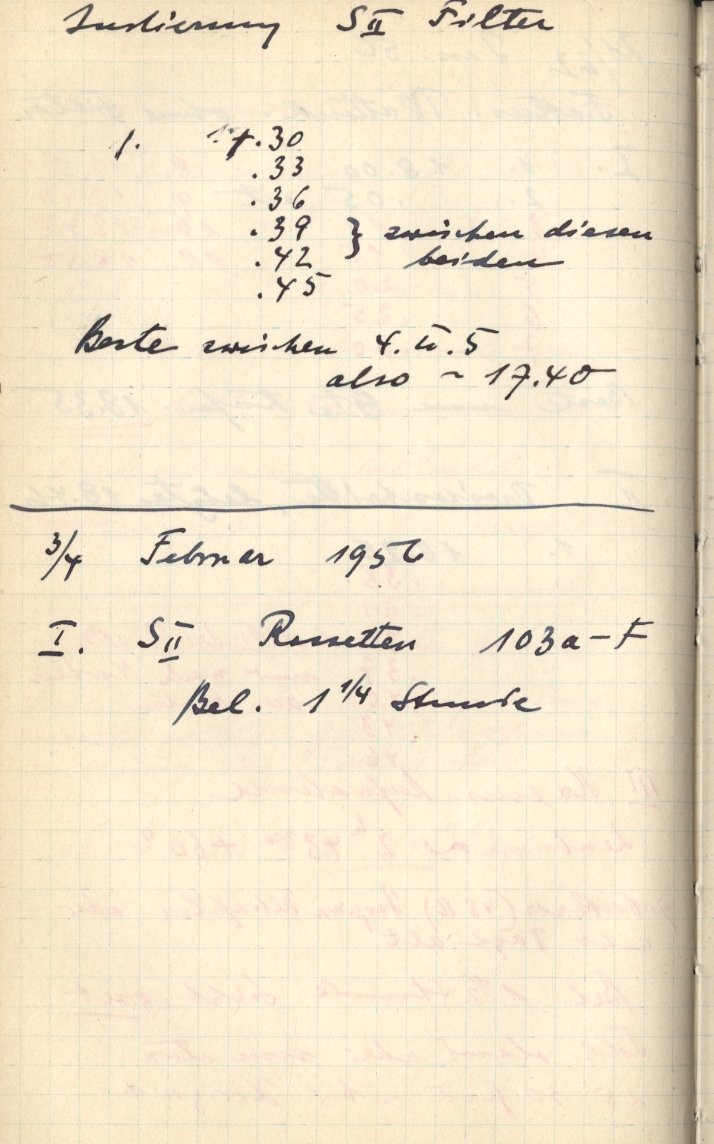 Justierung SII Filter
1. 17.30
.33
.36
.39 } zwischen diesen
.42 beiden
.45
Beste zwischen 4. u. 5
also ~ 17.40
3/4 Februar 1956
I. SII Rossetten 103a-F
Bel. 1 1/4 Stunde